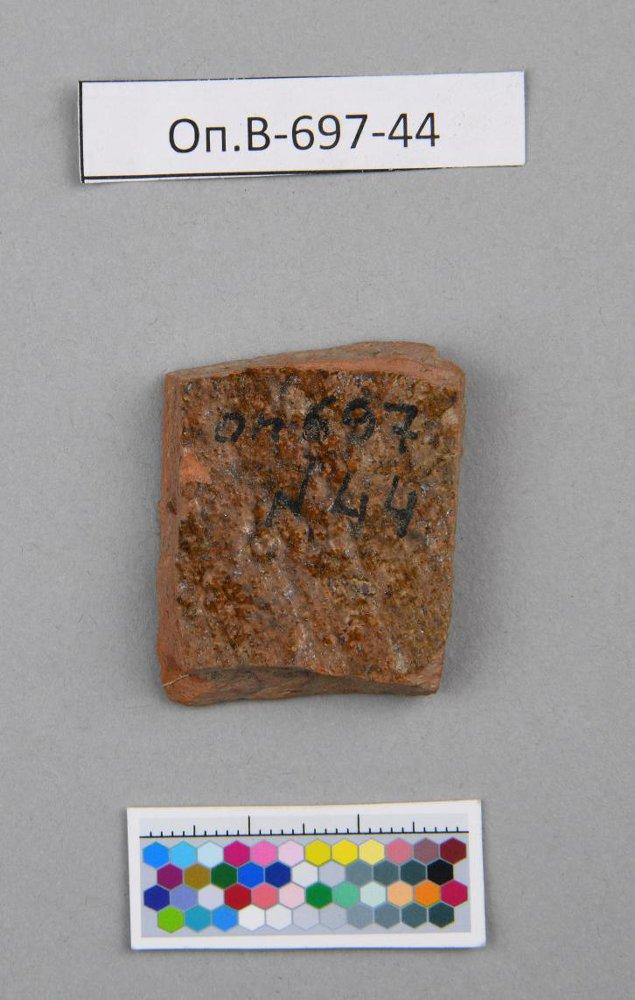 Оп.В-697-44
оп 697
N 44